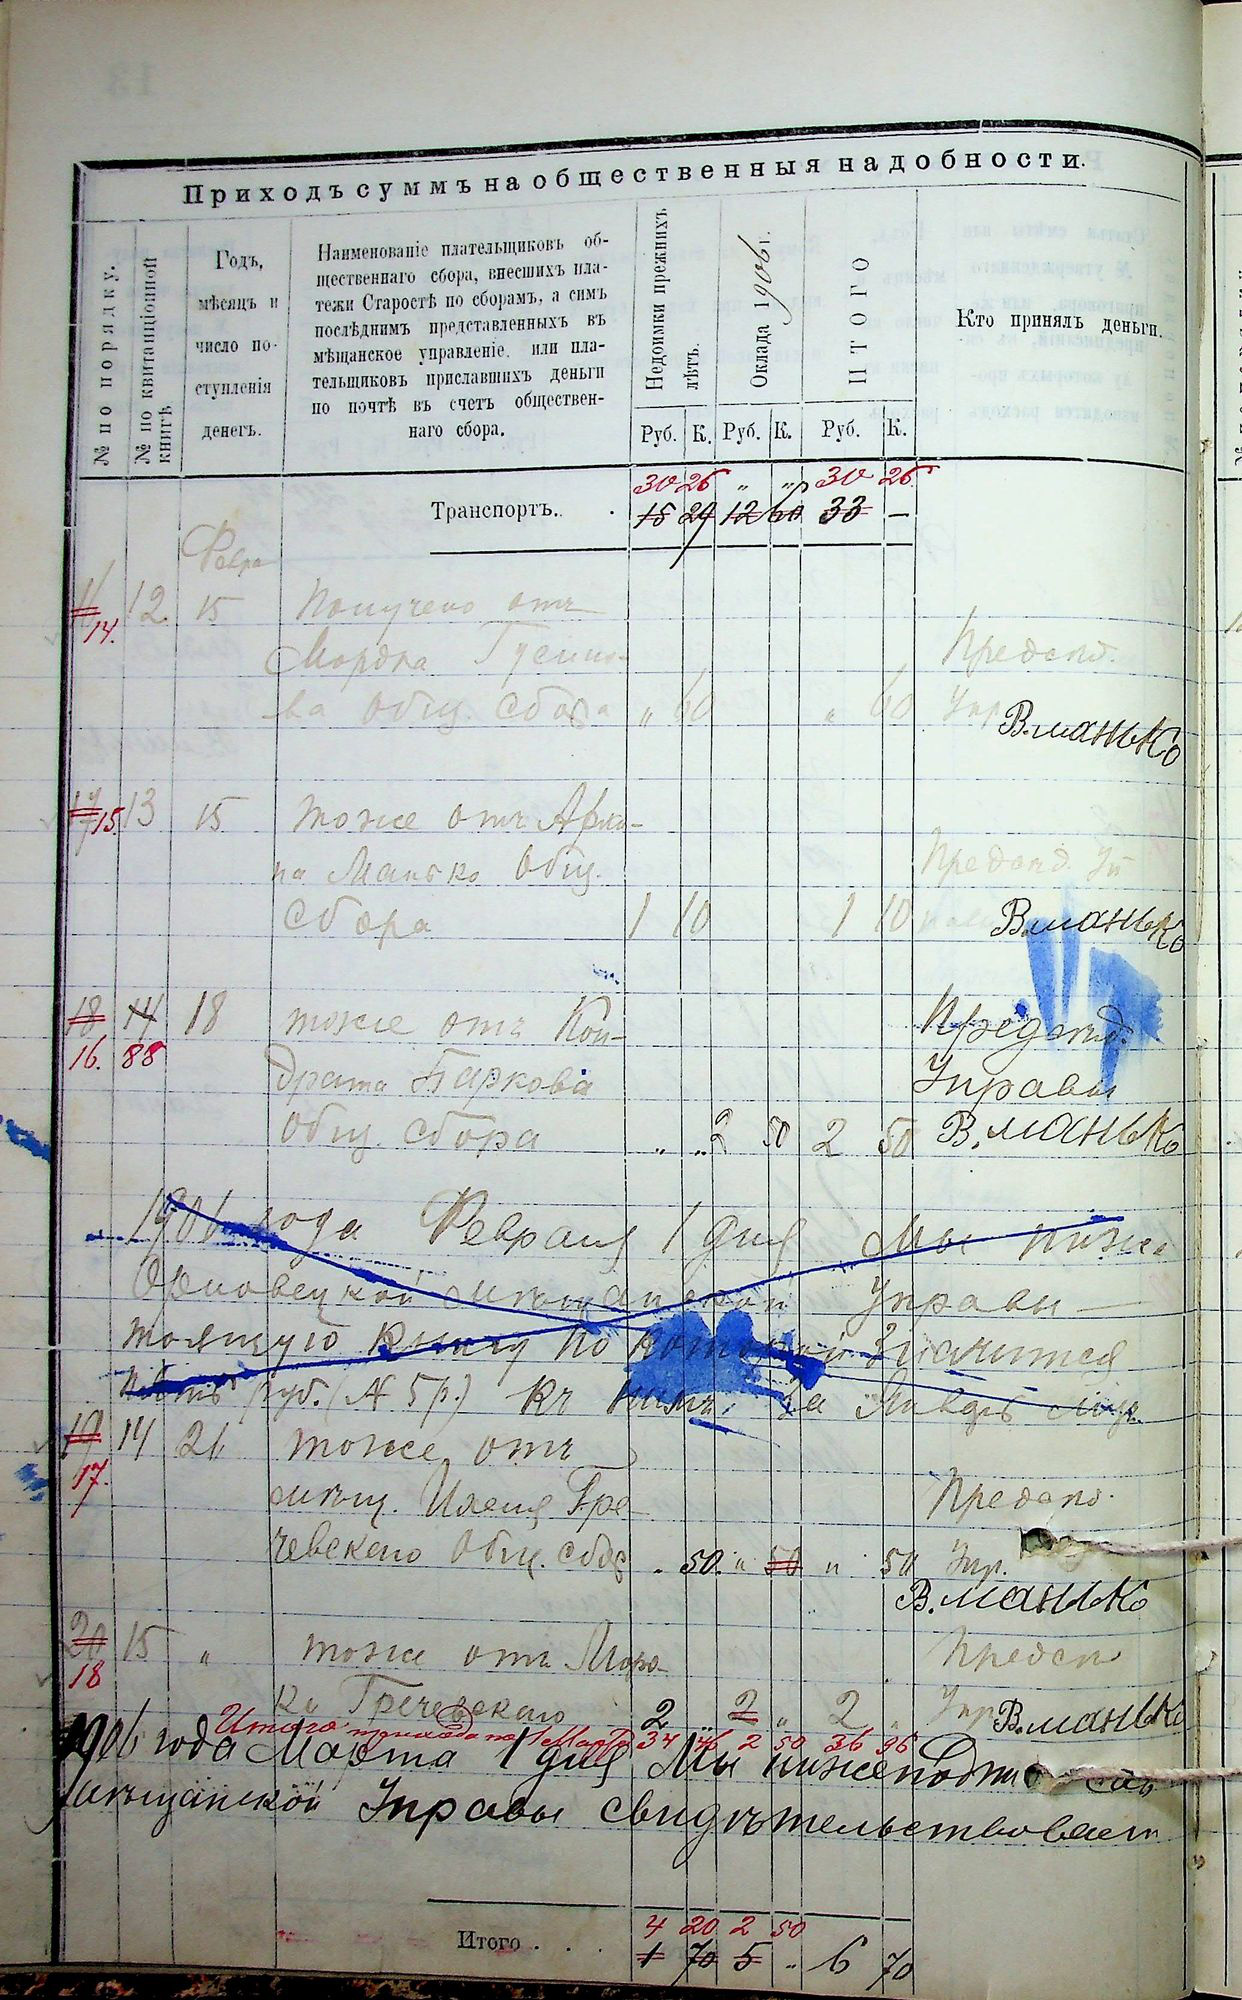 Приходъ суммъ на общественныя надобности.
№ по порядку.
№ по квитанціонной книгѣ
Годъ,
мѣсяцъ и
число по-
ступленія
денегъ.
Наименованіе плательщиковъ об-
щественнаго сбора, внесшихъ пла-
тежи Старостѣ по сборамъ, а симъ
послѣднимъ представленныхъ въ
мѣщанское управленіе. или пла-
тельщиковъ приславшихъ деньги
по почтѣ въ счетъ обществен-
наго сбора.
Недоимки прежнихъ лѣтъ.
Оклада 1906 г.
ИТОГО
Кто принялъ деньги.
Руб. К. Руб. К. Руб. К.
30 26 " " 30 26
Транспортъ. 15 29 12 60 33 —
Февра
12 15 Получено отъ
14.
Мордка Гусино- Предспд.
ва Общ. сбора " 60 " 60 Упр
В. Манько
17 15. 13 15 тоже отъ Архи-
па Манько Общ. Предспд. Уп
сбора 1 10 1 10 В. Манько
18 14 18 тоже отъ Кон- Предспд.
16. 88
драта Баркова Управы
Общ. сбора " " 2 50 2 50 В. Манько
1906 года Февраля 1 дня Мы ниже
мѣщанской Управы
тоящую книгу по которой Значится
пять руб. (№ 5 р.) къ нимъ. За
19 14 21 тоже отъ
17.
мѣщ. Гре- Предспд.
чевского Общ. сбор " 50. " 50 " 50 Упр.
В. Манько
20 15 " тоже отъ Мор- Предсп
18
ка Гречевского 2 " 2 " 2 " Упр В. Манько
Итого прихода по 1 Марта 34 46 2 50 36 96
1906 года Марта 1 дня Мы нижеподпи
мѣщанской Управы свидѣтельствовали
4 20 2 50
Итого . . . 1 70 5 " 6 70